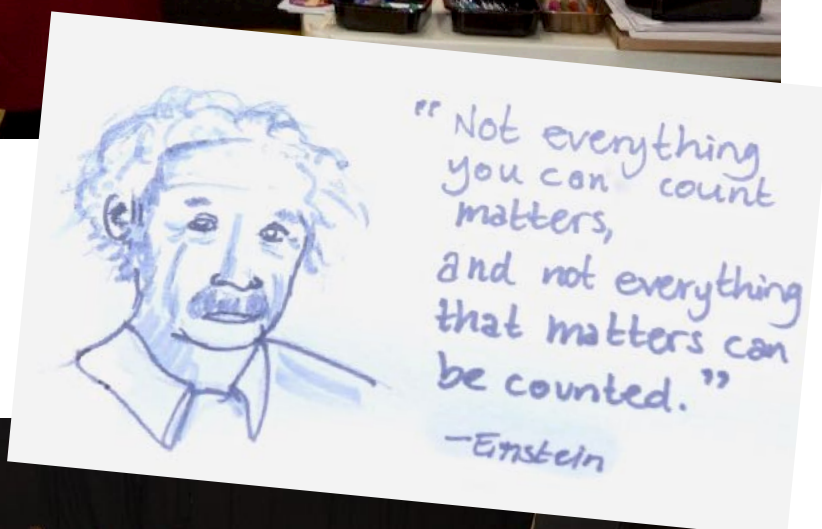 “Not everything
you can count
matters,
and not everything
that matters can
be counted.”
—Einstein